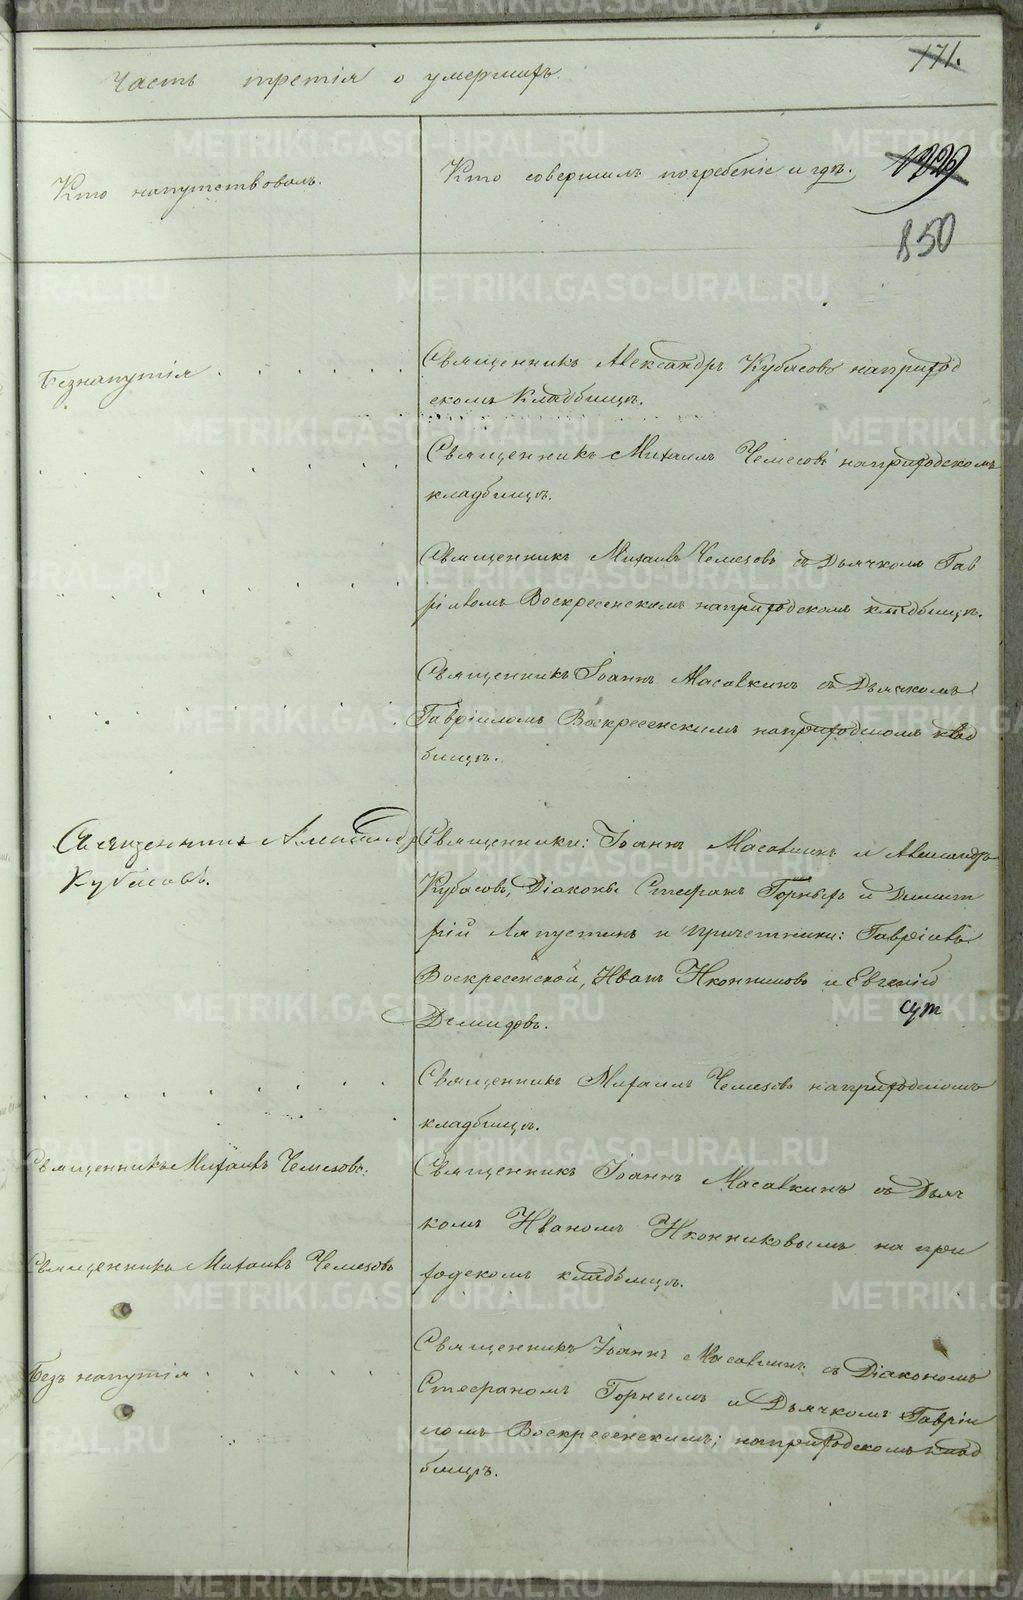 171.
Часть третія о умершихъ
Кто напутствовалъ.
Кто совершилъ погребеніе и гдѣ.
850
Безнапутія . . . . . .
Священникъ Александръ Кубасовъ наприход
скомъ Кладбищѣ.
Священникъ Михаилъ Чемесовъ наприходскомъ
кладбищѣ.
Священникъ Михаилъ Чемезовъ съ Дьячкомъ Гав
ріиломъ Воскресенскимъ наприходскомъ кладбищѣ.
Священникъ Іоаннъ Масавкинъ съ Дьячкомъ
Гавріиломъ Воскресенскимъ наприходскомъ клад
бищѣ.
Священникъ Александръ
Кубасовъ.
Священники: Іоаннъ Масавкинъ и Александръ
Кубасовъ, Діаконы Стефанъ Горныхъ и Димит
рій Ляпустинъ и причетники: Гавріилъ
Воскресенской, Иванъ Иконниковъ и Евгеній
Демидовъ.
Священникъ Михаилъ Чемезовъ наприходскомъ
кладбищѣ.
Священникъ Михаилъ Чемезовъ.
Священникъ Іоаннъ Масавкинъ съ Дьяч
комъ Иваномъ Иконниковымъ на при
ходскомъ кладбищѣ.
Священникъ Михаилъ Чемезовъ
Безъ напутія . . . . . .
Священникъ Іоаннъ Масавкинъ съ Діакономъ
Стефаномъ Горнимъ и Дьячкомъ Гавріи
ломъ Воскресенскимъ; наприходскомъ клад
бищѣ.
METRIKI.GASO-URAL.RU